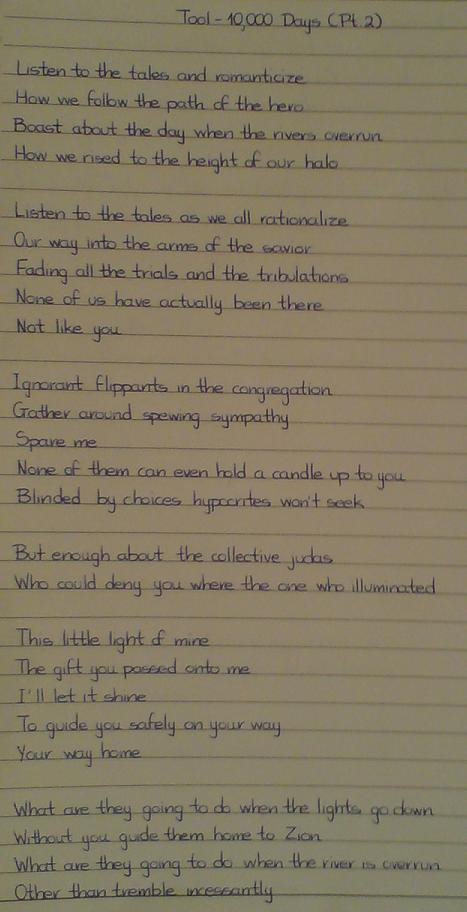 Tool - 10,000 Days (Pt. 2)
Listen to the tales and romanticize
How we follow the path of the hero
Boast about the day when the rivers overrun
How we rised to the height of our halo
Listen to the tales as we all rationalize
Our way into the arms of the savior
Fading all the trials and the tribulations
None of us have actually been there
Not like you
Ignorant flippants in the congregation
Gather around spewing sympathy
Spare me
None of them can even hold a candle up to you
Blinded by choices hypocrites won't seek
But enough about the collective judas
Who could deny you where the one who illuminated
This little light of mine
The gift you passed onto me
I'll let it shine
To guide you safely on your way
Your way home
What are they going to do when the lights go down
Without you guide them home to Zion
What are they going to do when the river is overrun
Other than tremble incessantly